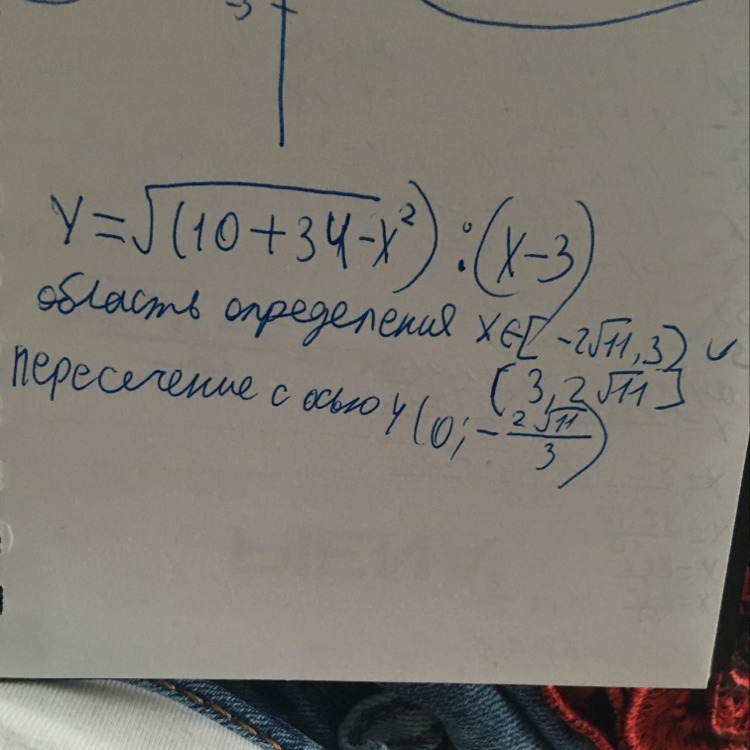 -3
y=√(10+34-x²):(x-3)
область определения x∈[-2√11,3) ∨
(3,2√11]
Пересечение с осью y (0;-2√11/3)